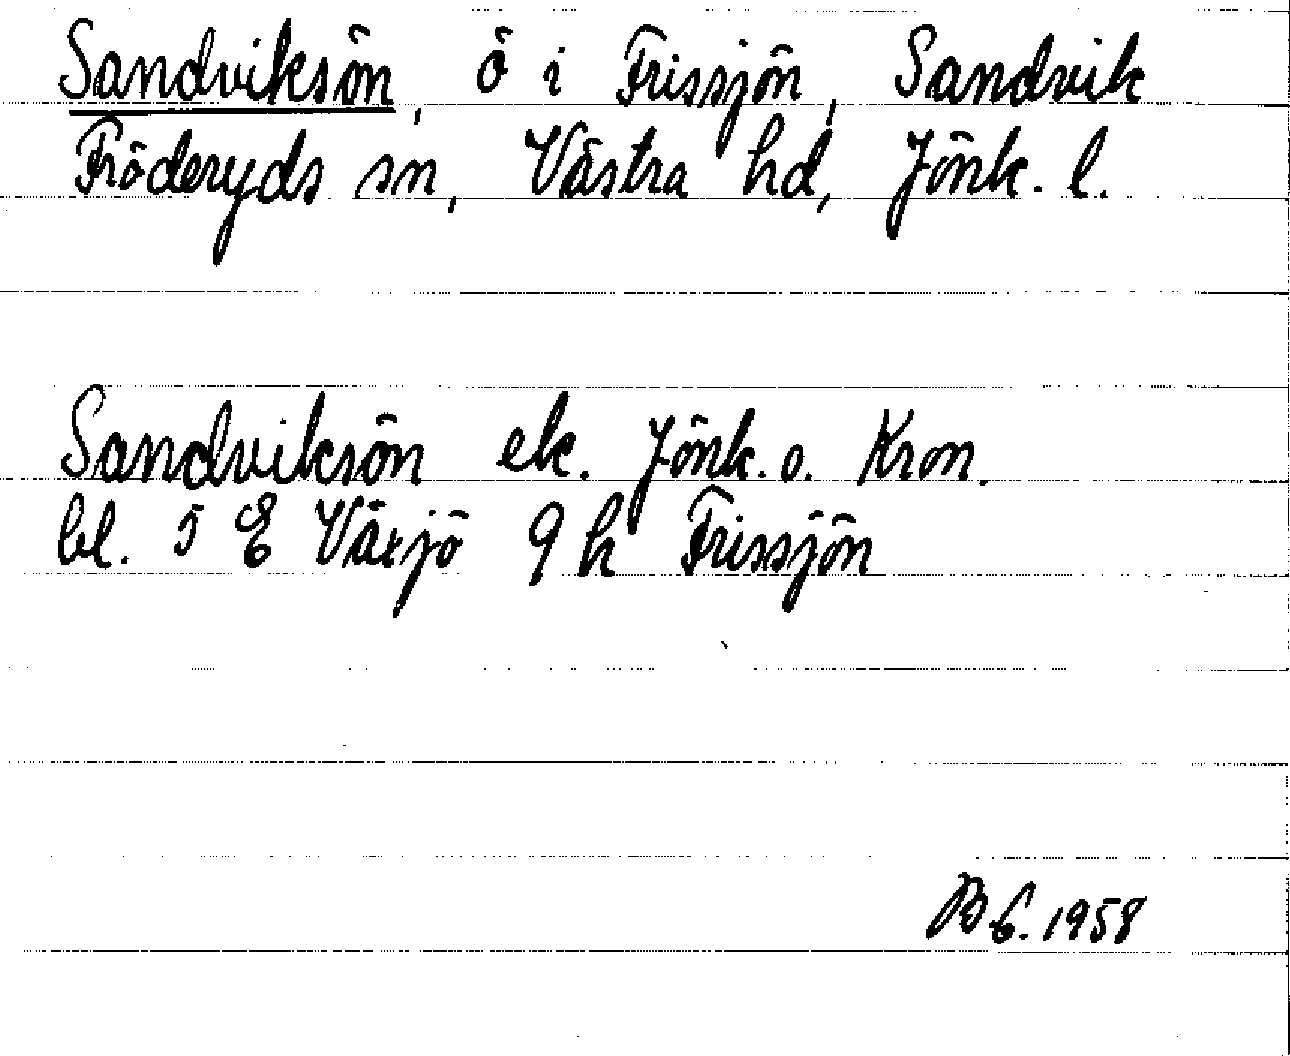 Sandviksön, ö i Frissjön, Sandvik
Fröderyds sn, Västra hd, Jönk. l.
Sandviksön ek. Jönk. o. Kron.
bl. 5 E Växjö 9 h Frissjön
1958